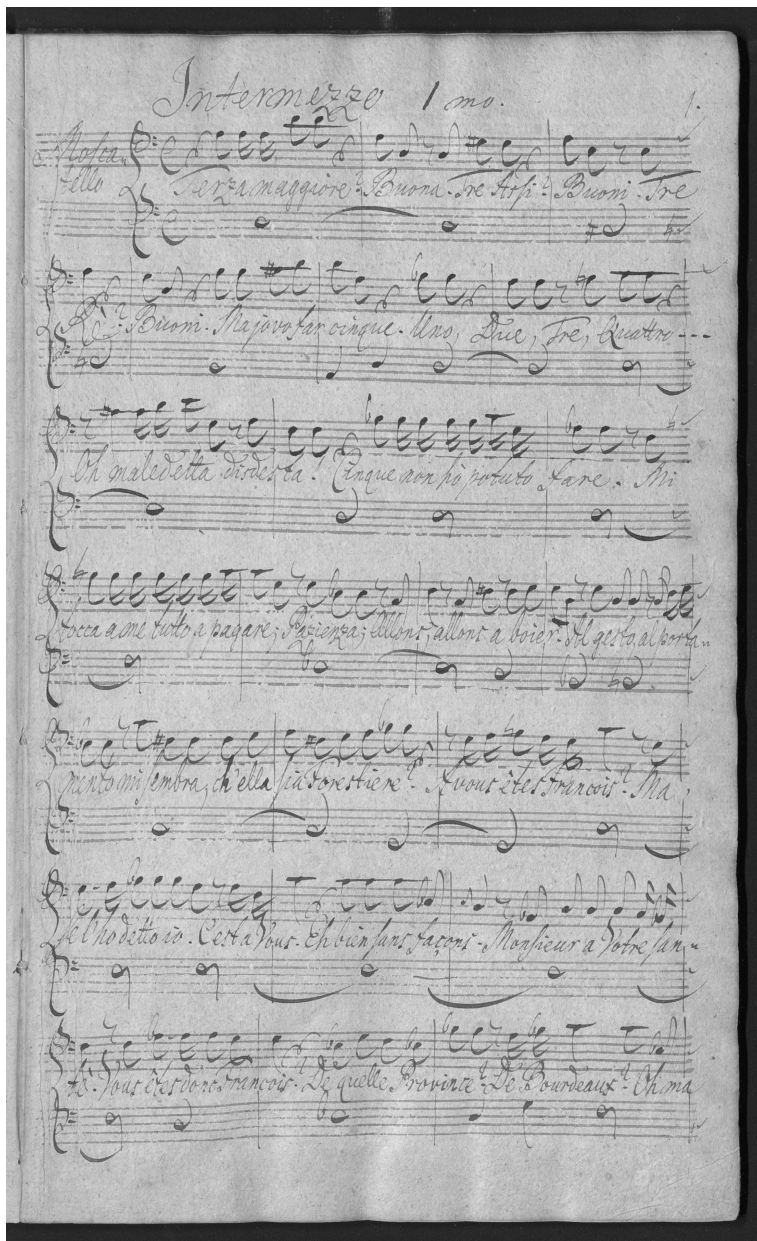 Intermezzo 1 mo.
1.
Mosca-
tello
Terza maggiore? Buona. Tre Assi? Buoni. Tre
Rè? Buoni. Ma jo vo far cinque. Uno, Due, Tre, Quattro ---
Oh maledetta disdetta! Cinque non hò potuto fare. Mi
tocca a me tutto a pagare; Pazienza; allons, allons a boier. Al gesto, al porta-
mento mi sembra, ch'ella sia Forestiere? A vous êtes Francois? Ma
se l'ho detto io. C'est a Vous. Eh bien sans façons. Monsieur a Votre san-
té. Vous êtes donc Francois. De quelle Province? De Bourdeaux? Oh ma